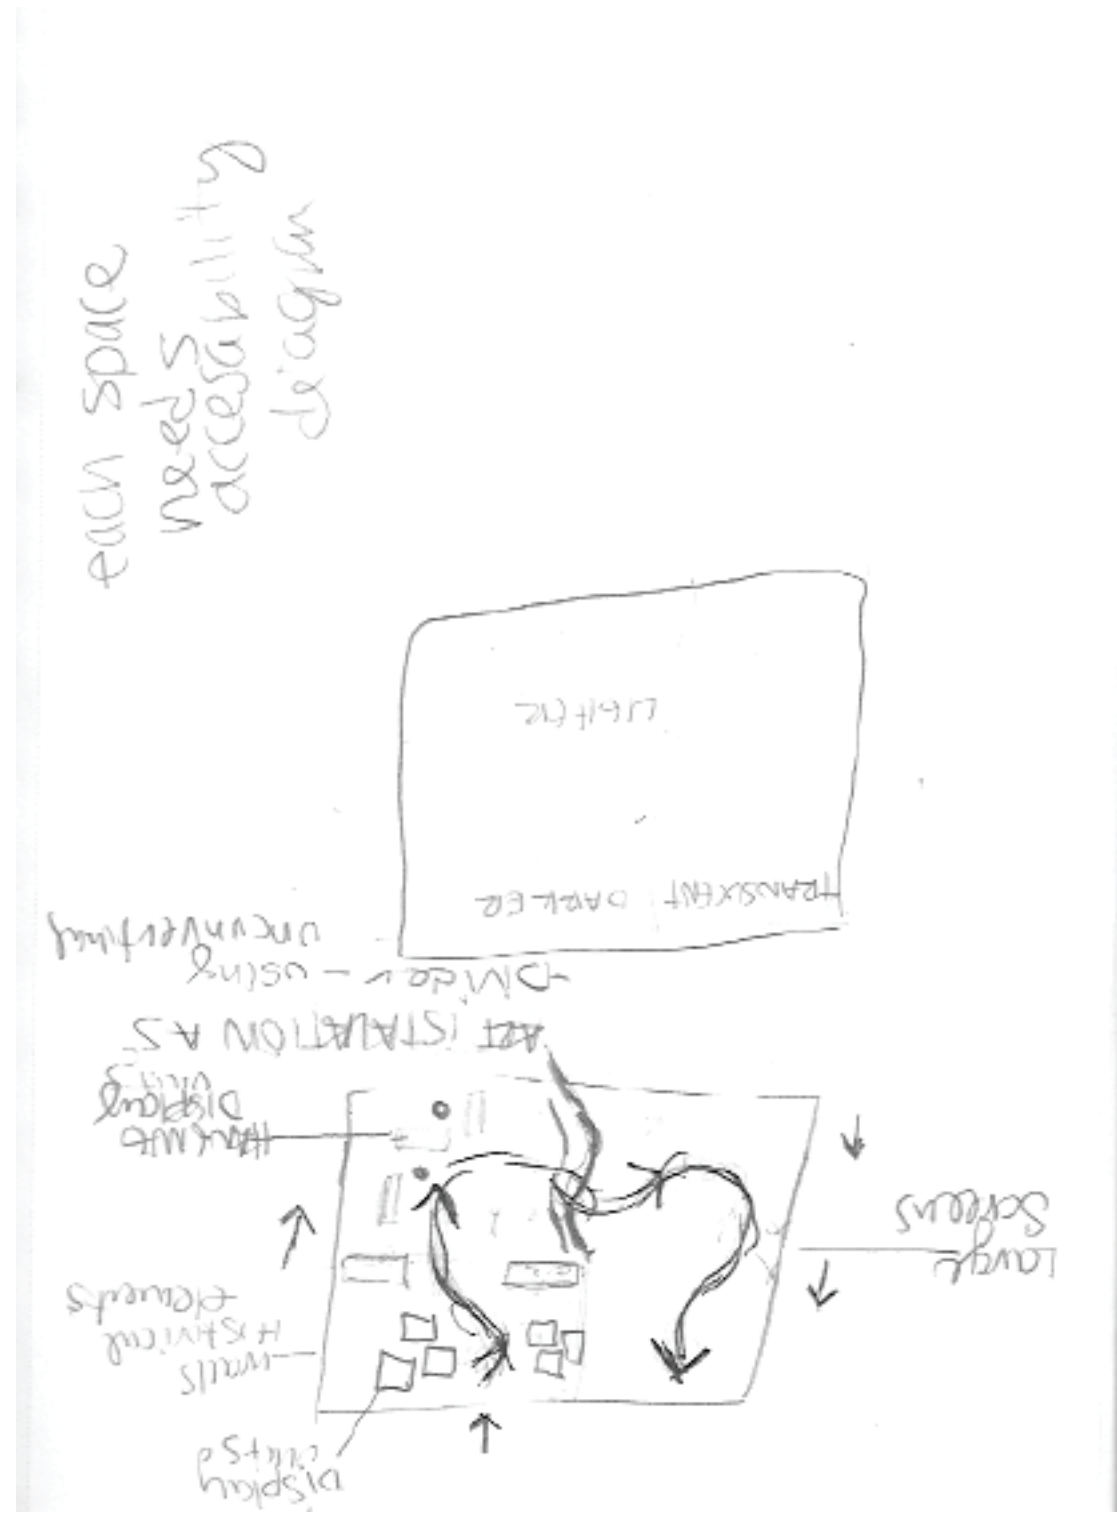 each space
needs
accesability
diagram
LIGHTER
TRANSIXENT DARKER
ART iSTALATION AS
-Divider - using
unconventinal
HANGING
DISPLAY
Large
Screens
-walls
Histirical
elements
DISPLAY